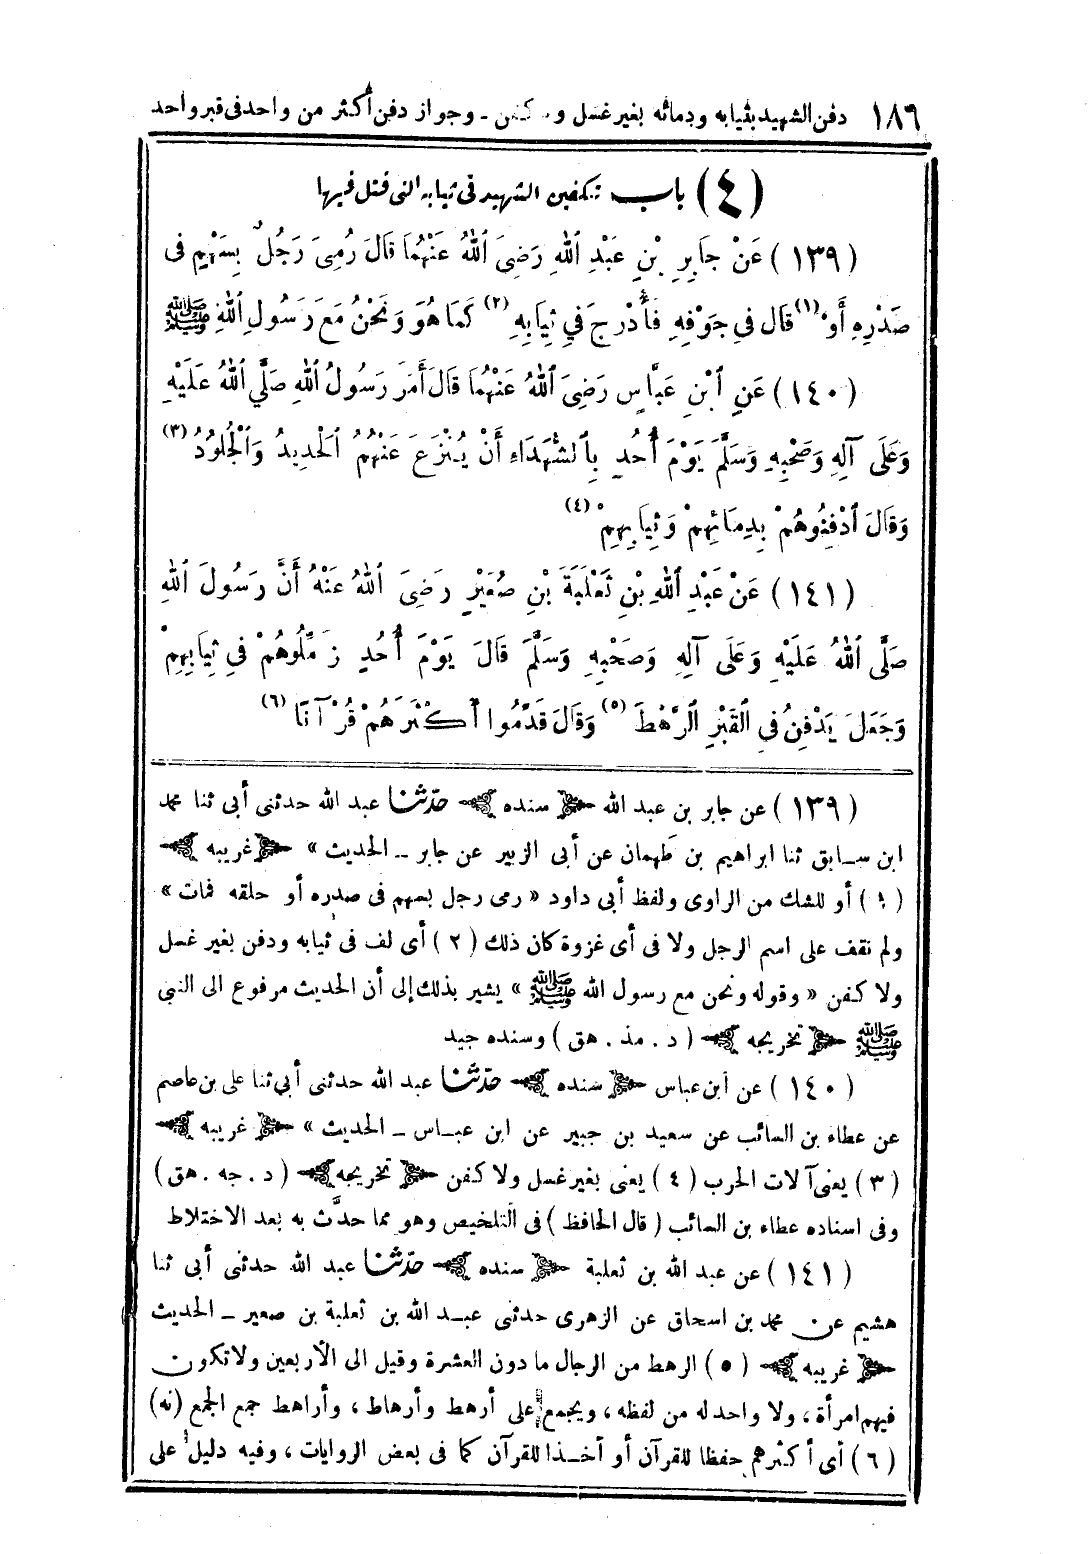 ١٨٦ دفن الشهيد بثيابه ودمائه بغير غسل و كفن - وجواز دفن أكثر من واحد فى قبر واحد
(٤) باب تكفين الشهيد فى ثيابه التى قتل فيها
(١٣٩) عَنْ جَابِرِ بْنِ عَبْدِ اللهِ رَضِىَ اللهُ عَنْهُمَا قَالَ رُمِىَ رَجُلٌ بِسَهْمٍ فِى
صَدْرِهِ أَوْ (١) قال فِى جَوْفِهِ فَأُدْرِجَ فِي ثِيَابِهِ (٢) كَمَا هُوَ وَنَحْنُ مَعَ رَسُولِ اللهِ ﷺ
(١٤٠) عَنِ ابْنِ عَبَّاسٍ رَضِىَ اللهُ عَنْهُمَا قَالَ أَمَرَ رَسُولُ اللهِ صَلَّي اللهُ عَلَيْهِ
وَعَلَى آلِهِ وَصَحْبِهِ وَسَلَّمَ يَوْمَ أُحُدٍ بِالشُّهَدَاءِ أَنْ يُنْزَعَ عَنْهُمُ الْحَدِيدُ وَالْجُلُودُ (٣)
وَقَالَ ادْفِنُوهُمْ بِدِمَائِهِمْ وَثِيَابِهِمْ (٤)
(١٤١) عَنْ عَبْدِ اللهِ بْنِ ثَعْلَبَةَ بْنِ صُعَيْرٍ رَضِىَ اللهُ عَنْهُ أَنَّ رَسُولَ اللهِ
صَلَّى اللهُ عَلَيْهِ وَعَلَى آلِهِ وَصَحْبِهِ وَسَلَّمَ قَالَ يَوْمَ أُحُدٍ زَمِّلُوهُمْ فِي ثِيَابِهِمْ
وَجَعَلَ يَدْفِنُ فِي الْقَبْرِ الرَّهْطَ (٥) وَقَالَ قَدِّمُوا أَكْثَرَهُمْ قُرْآنًا (٦)
(١٣٩) عن جابر بن عبد الله ﴿ سنده ﴾ حدّثنا عبد الله حدثنى أبى ثنا محمد
ابن سابق ثنا ابراهيم بن طهمان عن أبى الزبير عن جابر - الحديث » ﴿ غريبه ﴾
(١) أو للشك من الراوى ولفظ أبى داود « رمى رجل بسهم فى صدره أو حلقه فمات »
ولم نقف على اسم الرجل ولا فى أى غزوة كان ذلك (٢) أى لف فى ثيابه ودفن بغير غسل
ولا كفن « وقوله ونحن مع رسول الله ﷺ » يشير بذلك إلى أن الحديث مرفوع الى النبى
ﷺ ﴿ تخريجه ﴾ (د . مذ . هق) وسنده جيد
(١٤٠) عن ابن عباس ﴿ سنده ﴾ حدّثنا عبد الله حدثنى أبى ثنا على بن عاصم
عن عطاء بن السائب عن سعيد بن جبير عن ابن عباس - الحديث » ﴿ غريبه ﴾
(٣) يعنى آلات الحرب (٤) يعنى بغير غسل ولا كفن ﴿ تخريجه ﴾ (د . جه . هق)
وفى اسناده عطاء بن السائب (قال الحافظ) فى التلخيص وهو مما حدَّث به بعد الاختلاط
(١٤١) عن عبد الله بن ثعلبة ﴿ سنده ﴾ حدّثنا عبد الله حدثنى أبى ثنا
هشيم عن محمد بن اسحاق عن الزهرى حدثنى عبد الله بن ثعلبة بن صعير - الحديث
﴿ غريبه ﴾ (٥) الرهط من الرجال ما دون العشرة وقيل الى الأربعين ولا تكون
فيهم امرأة ، ولا واحد له من لفظه ، ويجمع على أرهط وأرهاط ، وأراهط جمع الجمع (نه)
(٦) أى أكثرهم حفظا للقرآن أو أخذا للقرآن كما فى بعض الروايات ، وفيه دليل على